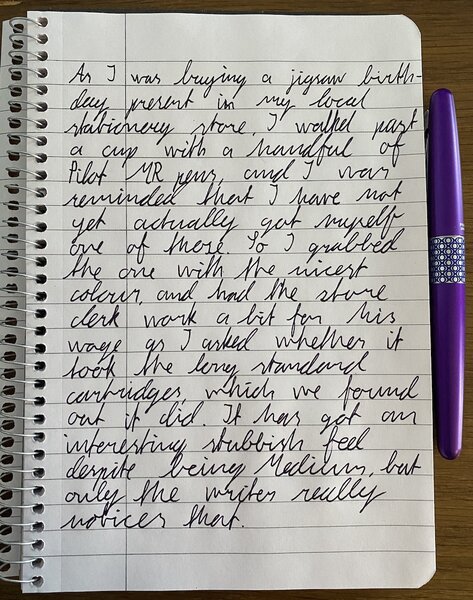 As I was buying a jigsaw birth-
day present in my local
stationery store, I walked past
a cup with a handful of
Pilot MR pens, and I was
reminded that I have not
yet actually got myself
one of those. So I grabbed
the one with the nicest
colour, and had the store
clerk work a bit for his
wage as I asked whether it
took the long standard
cartridges, which we found
out it did. It has got an
interesting stubbish feel
despite being Medium, but
only the writer really
notices that.